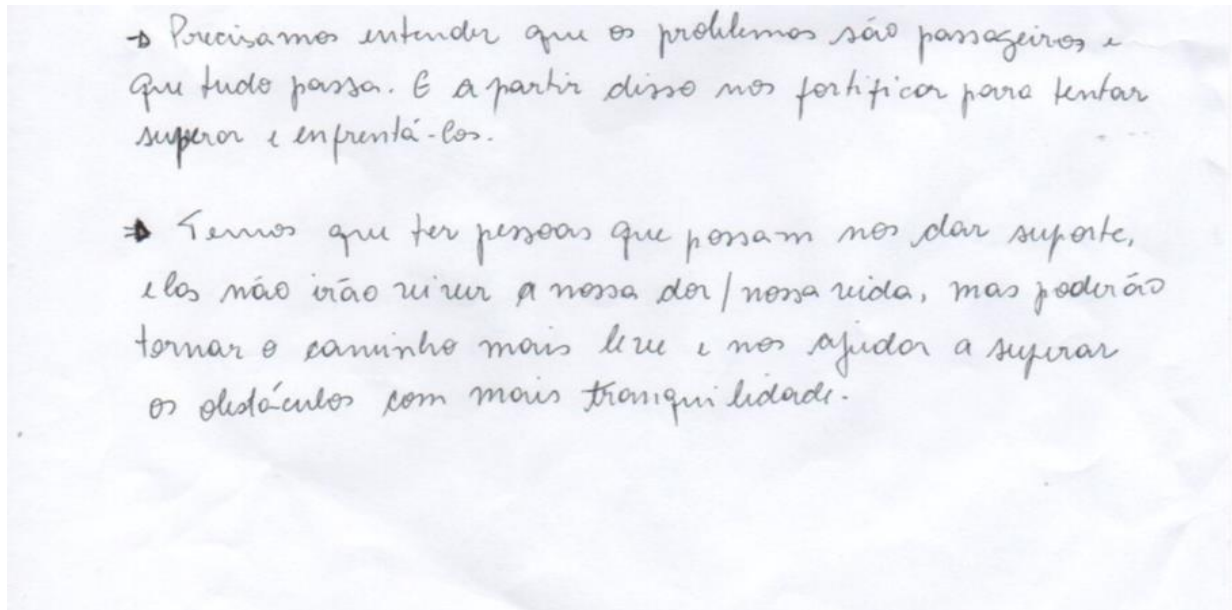 → Precisamos entender que os problemas são passageiros e
que tudo passa. E a partir disso nos fortificar para tentar
superar e enfrentá-los.
⇒ Temos que ter pessoas que possam nos dar suporte,
elas não irão viver a nossa dor/nossa vida, mas poderão
tornar o caminho mais leve e nos ajudar a superar
os obstáculos com mais tranquilidade.